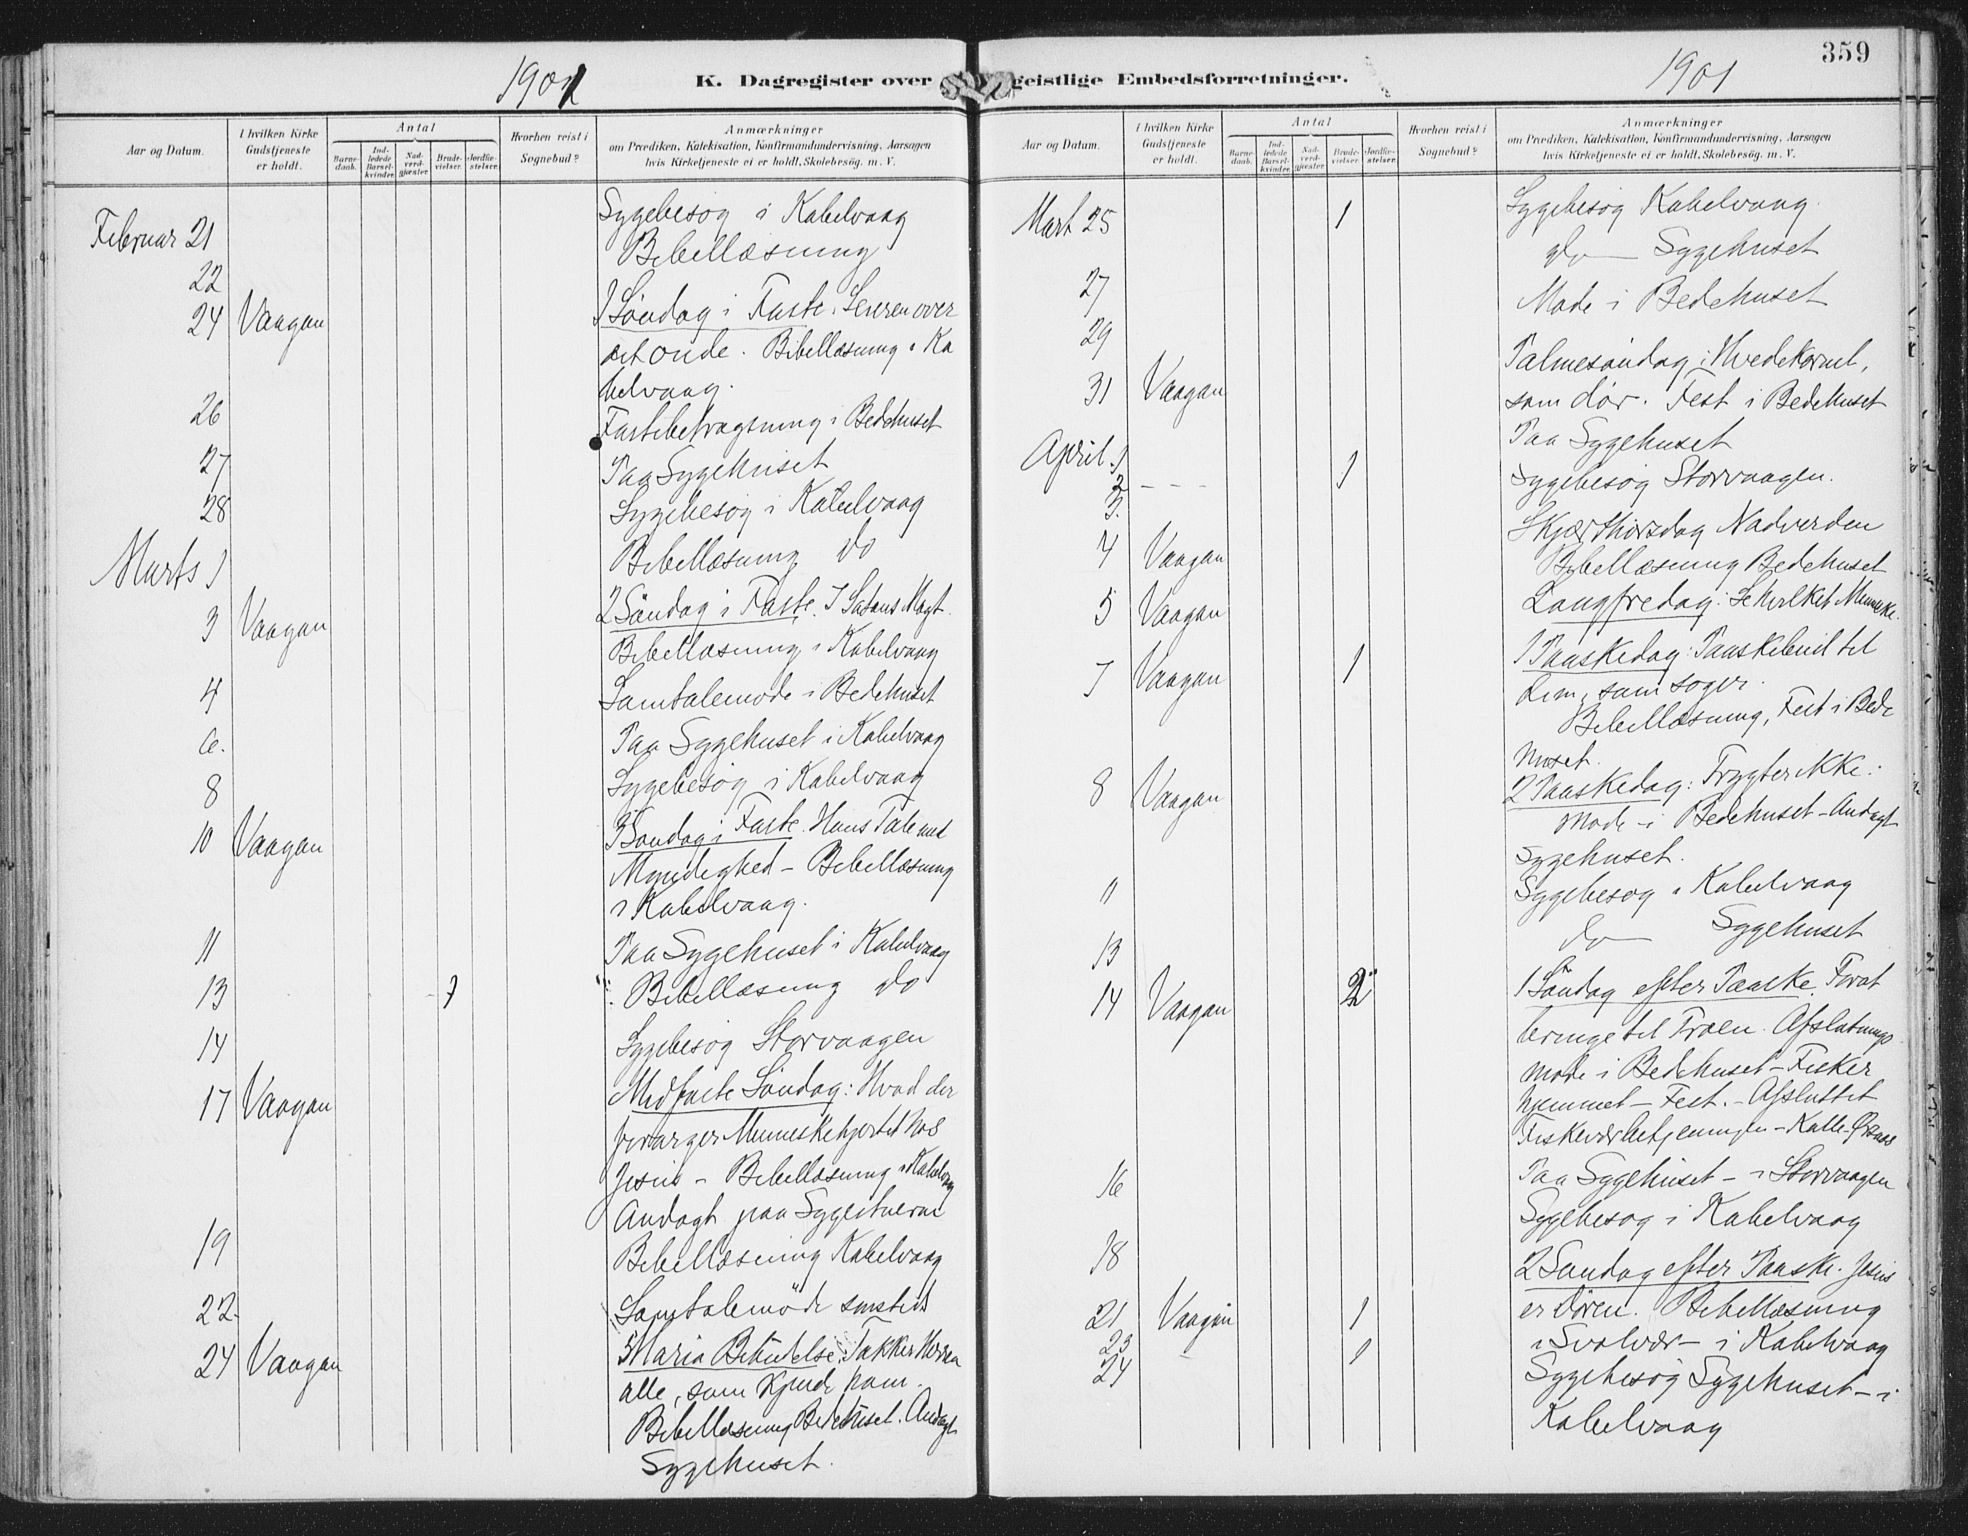 359
1901
K. Dagregister over geistlige Embedsforretninger.
1901
Aar og Datum.
I hvilken Kirke Gudstjeneste er holdt.
Antal
Barne-daab.
Ind-ledede Barsel-kvinder.
Nad-verd-gjæster.
Brude-vielser.
Jordfæ-stelser.
Hvorhen reist i Sognebud?
Anmærkninger
om Prædiken, Katekisation, Konfirmandundervisning, Aarsagen
hvis Kirketjeneste ei er holdt, Skolebesøg. m. V.
Februar 21
Sygebesøg i Kabelvaag
22
Bibellæsning
24 Vaagan
1 Søndag i Faste. Seiren over
det onde. Bibellæsning i Ka
belvaag.
26
Fastebetragtning i Bedehuset
27
Paa Sygehuset
28
Sygebesøg i Kabelvaag
Marts 1
Bibellæsning do
3 Vaagan
2 Søndag i Faste. I Satans Magt.
Bibellæsning i Kabelvaag
4
Samtalemøde i Bedehuset
6.
Paa Sygehuset i Kabelvaag
8
Sygebesøg i Kabelvaag
10 Vaagan
3 Søndag i Faste. Hans Tale med
Myndighed – Bibellæsning
i Kabelvaag.
11
Paa Sygehuset i Kabelvaag
13 1
Bibellæsning do
14
Sygebesøg Storvaagen
17 Vaagan
Midfaste Søndag: Hvad der
forarger Menneskehjertet hos
Jesus – Bibellæsning i Kabelvaag
Andagt paa
19
Bibellæsning Kabelvaag
22
Samtalemøde smsteds
24 Vaagan
Maria Bebudelse. Takker Herren
alle, som kjende ham.
Bibellæsning Bedehuset. Andagt
Sygehuset.
Aar og Datum.
I hvilken Kirke Gudstjeneste er holdt.
Antal
Barne-daab.
Ind-ledede Barsel-kvinder.
Nad-verd-gjæster.
Brude-vielser.
Jordfæ-stelser.
Hvorhen reist i Sognebud?
Anmærkninger
om Prædiken, Katekisation, Konfirmandundervisning, Aarsagen
hvis Kirketjeneste ei er holdt, Skolebesøg. m. V.
Mart 25 1
Sygebesøg Kabelvaag.
do – Sygehuset
27
Møde i Bedehuset
29
31 Vaagan
Palmesøndag: Hvedekornet,
som dør. Fest i Bedehuset
April 1 1
Paa Sygehuset
2 - - -
Sygebesøg Storvaagen.
3.
4 Vaagan
Skjærthorsdag Nadverden
Bibellæsning Bedehuset
5 Vaagan
Langfredag: Se hvilket Menneske.
7 Vaagan 1
1 Paaskedag: Paaskebud til
dem, som søger.
Bibellæsning, Fest i Bede
huset.
8 Vaagan
2 Paaskedag: Frygter ikke.
Møde i Bedehuset – Andagt
Sygehuset.
11
Sygebesøg i Kabelvaag
13
do – Sygehuset
14 Vaagan 2
1 Søndag efter Paaske. For at
bringe til Troen. Afslutnings
møde i Bedehuset – Fisker
hjemmet – Fest. – Afsluttet
Fiskeværbetjeningen – Kalle-
16
Paa Sygehuset – i Storvaagen
18
Sygebesøg i Kabelvaag
2 Søndag efter Paaske. Jesus
21 Vaagan 1
er Døren. Bibellæsning
23 – 1
i Svolvær – i Kabelvaag
24
Sygebesøg Sygehuset – i
Kabelvaag